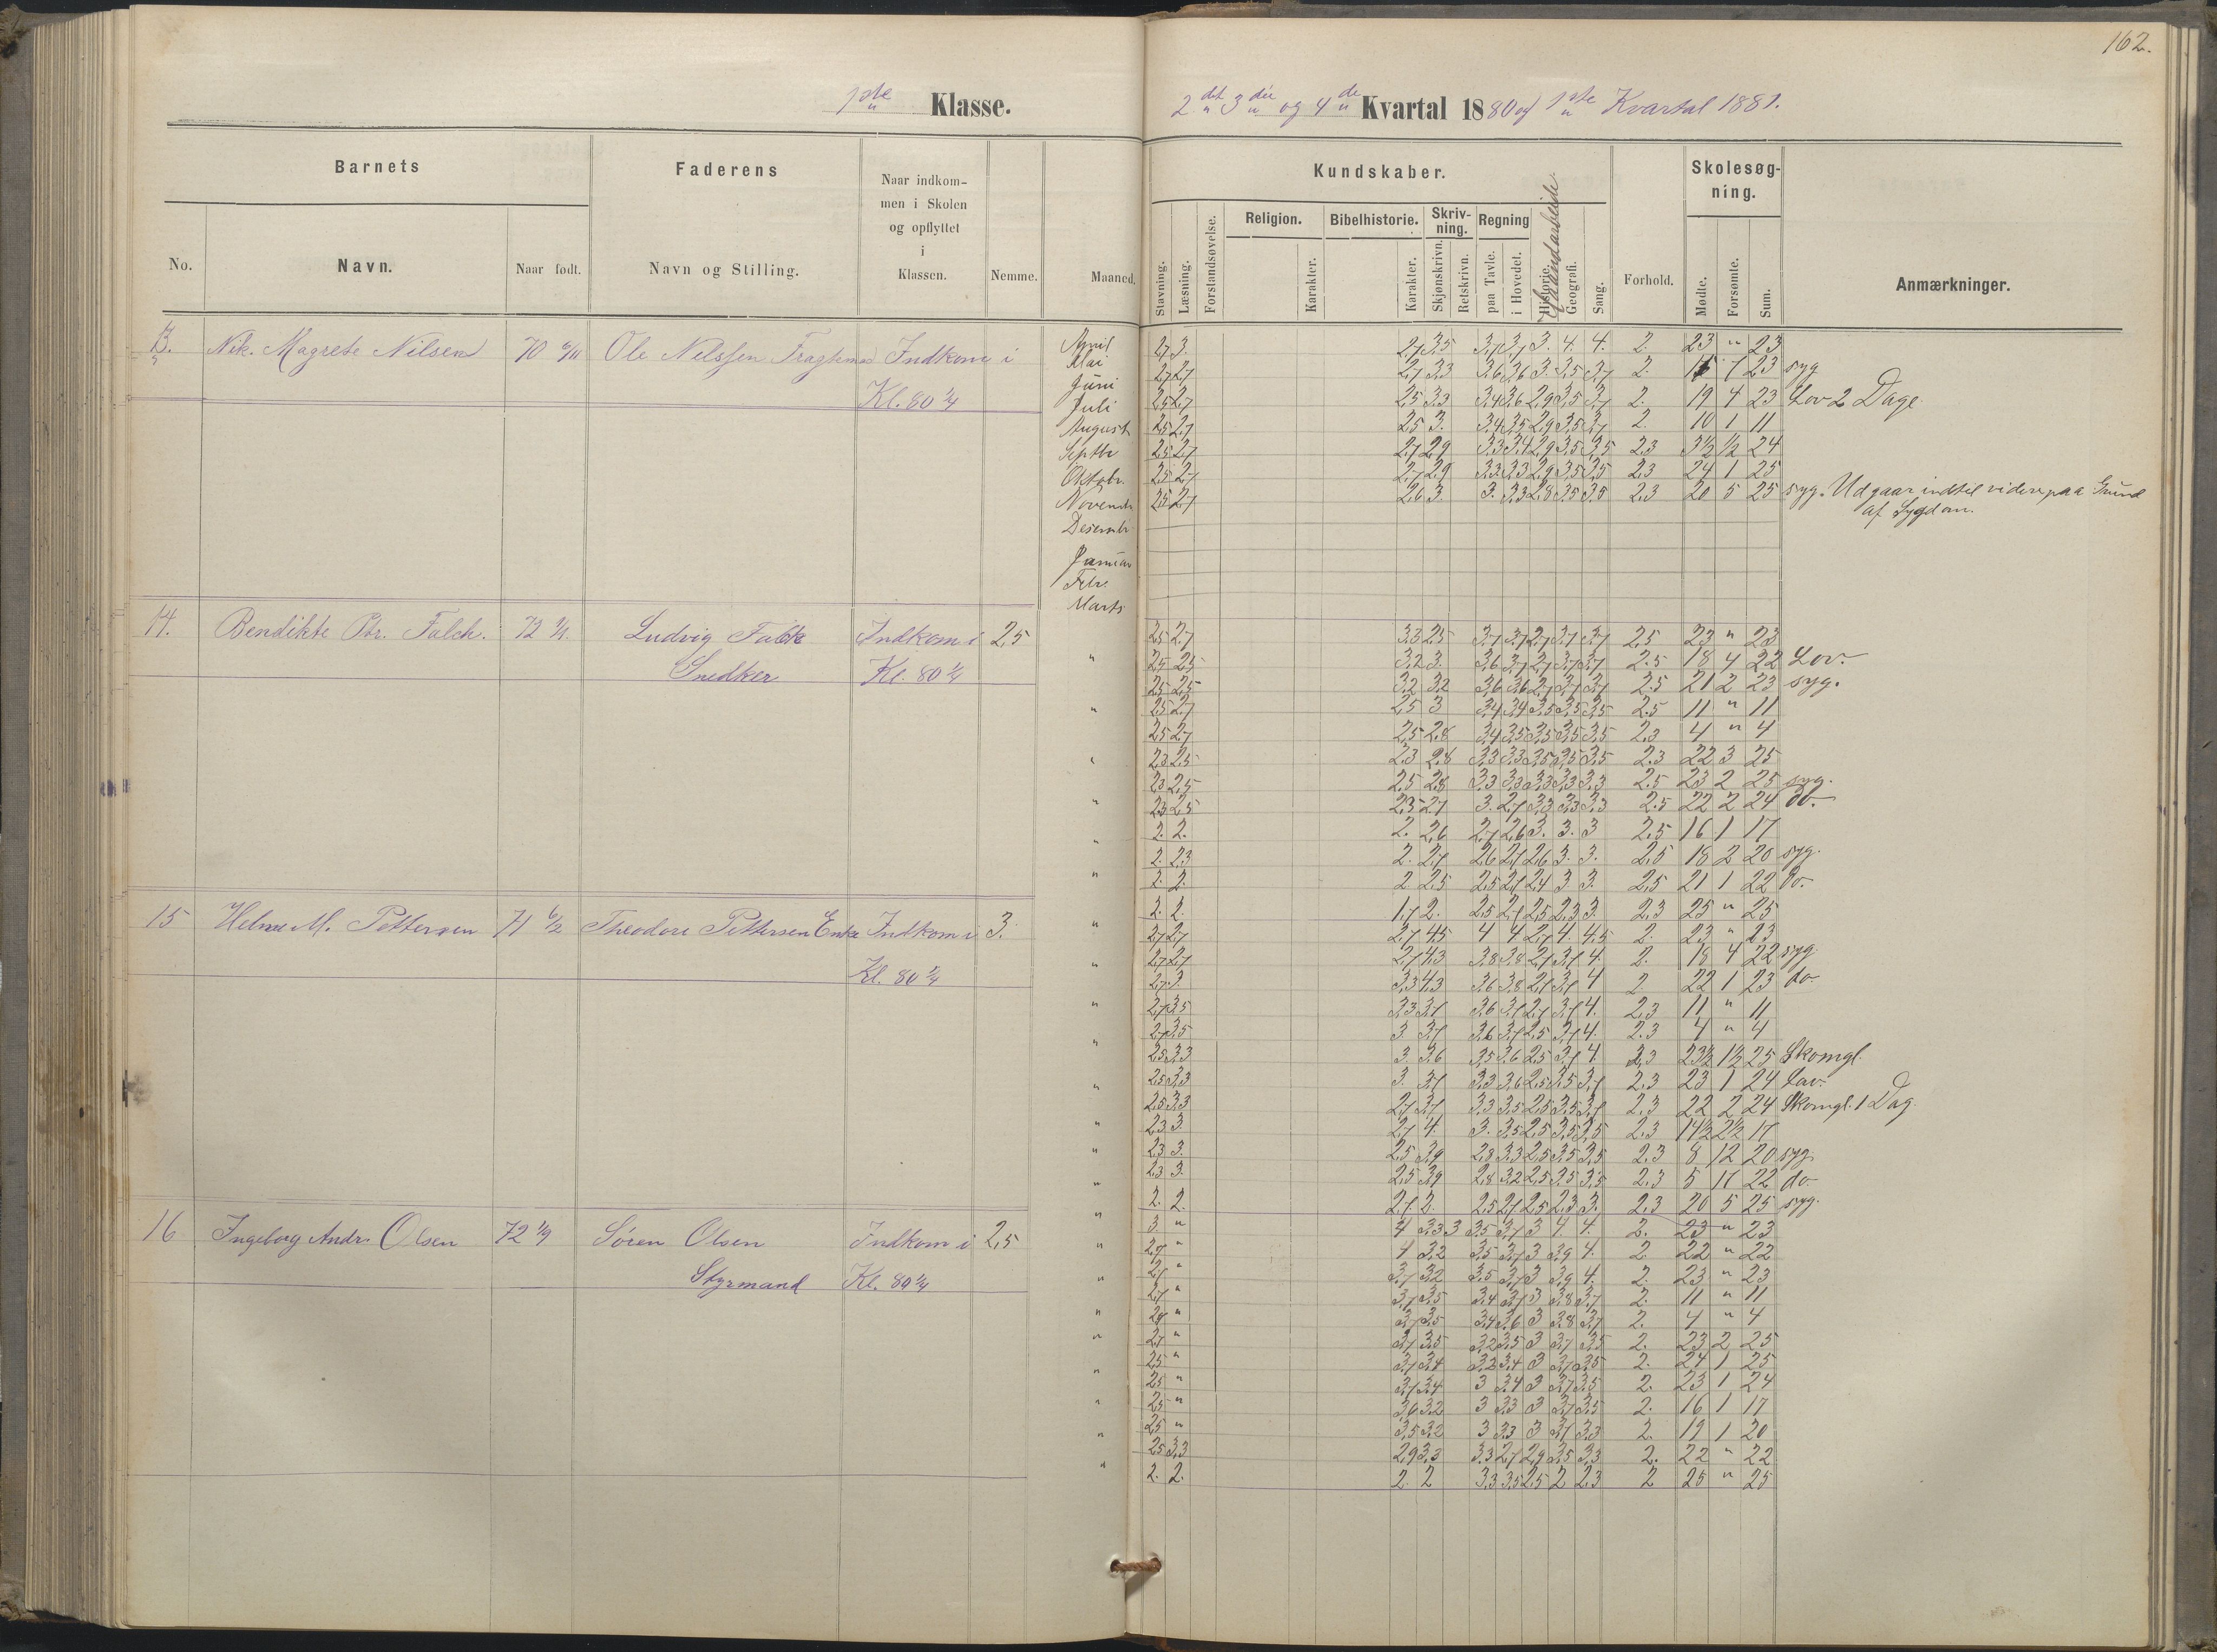 162.
1ste Klasse.
2det 3die og 4de Kvartal 1880 og 1ste Kvartal 1881.
Barnets
Faderens
Naar indkommen i Skolen og opflyttet i Klassen.
Nemme.
Maaned.
No.
Navn.
Naar født.
Navn og Stilling.
Kundskaber.
Skolesøgning.
Religion.
Bibelhistorie.
Skrivning.
Regning
Haandarbeide.
Stavning.
Læsning.
Forstandsøvelse.
Karakter.
Karakter.
Skjønskrivn.
Retskrivn.
paa Tavle.
i Hovedet.
Historie.
Geografi.
Sang.
Forhold.
Mødte.
Forsømte.
Sum.
Anmærkninger.
13. Nik. Magrete Nilsen 70 6/11 Ole Nelssen Indkom i
Kl. 80 1/4
April 2,7 3. 2,7 3,5 3,7 3,7 3. 4. 4. 2. 23 " 23
Mai 2,7 2,7 2,7 3,3 3,6 3,6 3. 3,5 3,7 2. 7 23 syg
Juni 2,5 2,7 2,5 3,3 3,4 3,6 2,9 3,5 3,7 2. 19 4 23 Lov 2 Dage.
Juli 2,5 2,7 2,5 3. 3,4 3,5 2,9 3,5 3,7 2. 10 1 11
August 2,5 2,7 2,7 2,9 3,3 3,4 2,9 3,5 3,5 2,3 3 1/2 1/2 24
Septbr 2,5 2,7 2,7 2,9 3,3 3,3 2,9 3,5 3,5 2,3 24 1 25
Oktobr. 2,5 2,7 2,6 3. 3. 3,3 2,8 3,5 3,5 2,3 20 5 25 syg. Udgaar indtil videre paa Grund
af Sygdom.
Novembr
Desembr.
Januar
Febr
Marts
14. Bendikte Ptr. Falch. 72 Ludvig Falck Indkom i 2,5
Snedker Kl. 80 1/4
2,5 2,7 3,3 2,5 3,7 3,7 2,7 3,7 3,7 2,5 23 " 23
2,5 2,5 3,2 3. 3,6 3,7 2,7 3,7 3,7 2.5 18 4 22 Lov.
2,5 2,5 3,2 3,2 3,6 3,6 2,7 3,7 3,7 2.5 21 2 23 syg.
2,5 2,7 2,5 3 3,4 3,4 3,5 3,5 3,5 2.5 11 " 11
2,5 2,7 2,5 2,8 3,4 3,5 3,5 3,5 3,5 2,3 4 " 4
2,3 2,5 2,3 2,8 3,3 3,3 3,5 3,5 3,5 2.3 22 3 25
2,3 2,5 2,5 2,8 3,3 3,3 3,3 3,3 3,3 2.5 23 2 25 syg.
2,3 2,5 2,3 2,7 3. 2,7 3,3 3,3 3,3 2.5 22 2 24 do.
2. 2. 2. 2,6 2,7 2,6 3. 3. 3 2,5 16 1 17
2. 2,3 2. 2,7 2,6 2,7 2,6 3. 3. 2,5 18 2 20 syg.
2. 2. 2. 2,5 2,5 2,7 2,4 3 3. 2,5 21 1 22 do.
2. 2. 1,7 2. 2,5 2,7 2,5 2,3 3. 2,3 25 " 25
15 Helene M. Pettersen 71 6/2 Theodore Pettersen Enke Indkom i 3.
Kl. 80 1/4
2,7 2,7 2,7 4,5 4 4 2,7 4. 4,5 2. 23 " 23
2,7 2,7 2,7 4,3 3,8 3,8 2,7 3,7 4. 2. 18 4 22 syg.
2,7 3. 3,3 4,3 3,6 3,8 2,7 3,7 4 2. 22 1 23 do.
2,7 3,5 3,3 3,7 3,6 3,7 2,7 3,7 4. 2,3 11 " 11
2,7 3,5 3. 3,7 3,6 3,7 2,5 3,7 4. 2.3 4 " 4
2,5 3,3 3. 3,6 3,5 3,6 2,5 3,7 4. 2,3 23 1/2 1 1/2 25 Skomgl.
2,5 3,3 3. 3,7 3,3 3,6 2,5 3,5 3,7 2.3 23 1 24 Lov.
2,5 3,3 2,7 3,7 3,3 3,5 2,5 3,5 3,7 2,3 22 2 24 Skomgl. 1 Dag.
2,3 3. 2,7 4. 3. 3,5 2,5 3,5 3,5 2.3 14 1/2 2 1/2 17
2,3 3. 2,5 3,9 2,8 3,3 2,5 3,5 3,5 2.3 8 12 20 syg.
2,3 3. 2,5 3,9 2,8 3,2 2,5 3,5 3,5 2,3 5 17 22 do
2. 2. 2,7 2. 2,5 2,7 2,5 2,3 3. 2,3 20 5 25 syg.
16 Ingeborg Andr. Olsen 72 1/9 Søren Olsen Indkom i 2,5
Styrmand Kl. 80 1/4
3. " 4 3,3 3 3,5 3,7 3 4. 4. 2. 23 " 23
2,7 " 4 3,2 3,5 3,7 3 3,9 4. 2. 22 " 22
2,7 " 3,7 3,2 3,5 3,7 3 3,9 4. 2. 23 " 23
2,7 " 3,7 3,5 3,4 3,7 3 3,8 3,7 2. 11 " 11
2,7 " 3,7 3,5 3,4 3,6 3 3,8 3,7 2. 4 " 4
2,7 " 3,7 3,5 3,2 3,5 3 3,7 3,5 2. 23 2 25
2,5 " 3,7 3,4 3,2 3,4 3 3,7 3,5 2. 24 1 25
2,5 " 3,7 3,4 3 3,4 3 3,7 3,5 2. 23 1 24
2,5 " 3,6 3,2 3 3,3 3 3,7 3,5 2. 16 1 17
2,5 " 3,5 3,2 3 3,3 3 3,7 3,3 2. 19 1 20
2,5 3,3 2,9 3,3 3,3 2,7 2,9 3,5 3,3 2. 22 " 22
2. 2. 2. 2 3,3 3,5 2,5 2 2,3 2 25 " 25